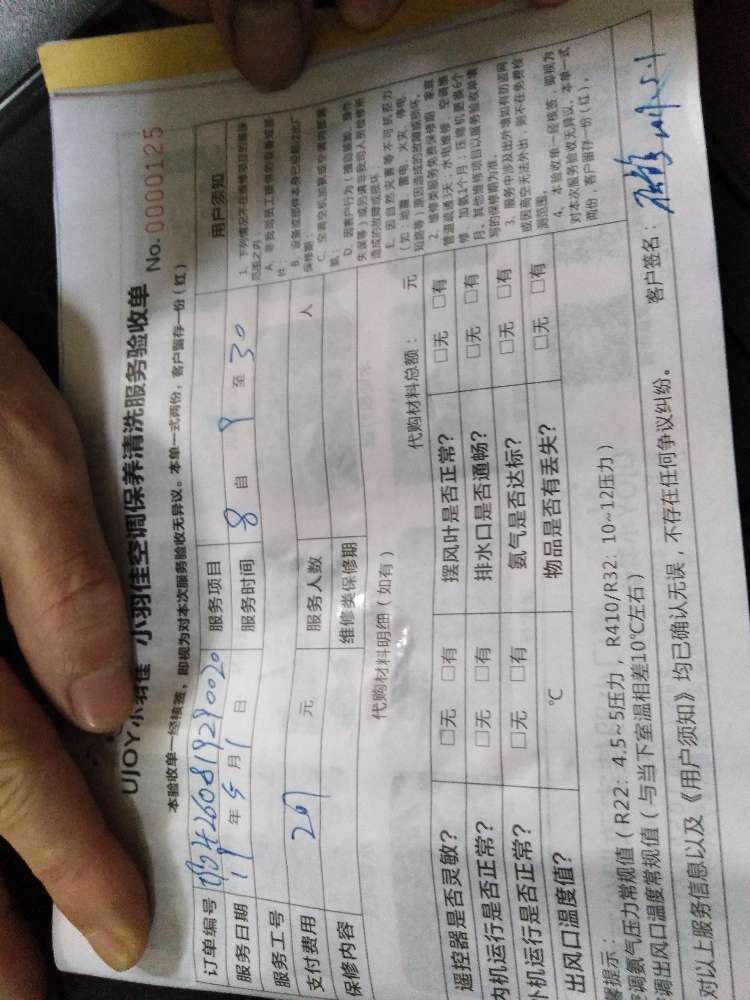 UJOY小羽佳 小羽佳空调保养清洗服务验收单 No. 0000125
本验收单一经核签，即视为对本次服务验收无异议。本单一式两份，客户留存一份（红）
订单编号
服务项目
服务日期 19 年 5 月 1 日
服务时间 8 自 9 至 30
服务工号
支付费用 元
服务人数 人
保修内容
维修类保修期
代购材料明细（如有）
代购材料总额： 元
遥控器是否灵敏？ □无 □有
摆风叶是否正常？ □无 □有
内机运行是否正常？ □无 □有
排水口是否通畅？ □无 □有
机运行是否正常？ □无 □有
氨气是否达标？ □无 □有
出风口温度值？ ℃
物品是否有丢失？ □无 □有
用户须知
1. 下列情况不在维修项目的维保范围之内
A. 非我司员工提供的设备或部件；
B. 设备或部件本身已经超过出厂保修期；
D. 因客户行为（擅自装卸、操作失误等）或另请非我司人员检修所造成的故障或损坏
E. 因自然灾害等不可抗拒力（如：地震、雷电、火灾、停电、短路等）原因造成的故障或损坏。
2. 维修类服务免费保修期，家庭管道疏通3天，水电维修、空调维修、加氨1个月；压缩机更换6个月。其他维修项目以服务验收单填写的保修期为准。
3. 服务中涉及出外墙如有防盗网或因高空无法外出，则不在免费检测范围。
4. 本验收单一经核签，即视为对本次服务验收无异议。本单一式两份，客户留存一份（红）。
提示：
调氨气压力常规值（R22：4.5~5压力，R410/R32：10~12压力）
调出风口温度常规值（与当下室温相差10℃左右）
对以上服务信息以及《用户须知》均已确认无误，不存在任何争议纠纷。
客户签名：